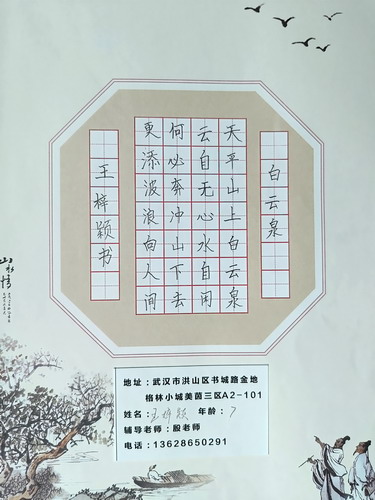 白云泉
天平山上白云泉
云自无心水自闲
何必奔冲山下去
更添波浪向人间
王梓颖书
地址：武汉市洪山区书城路金地
格林小城美茵三区A2-101
姓名：王梓颖 年龄：7
辅导老师：殷老师
电话：13628650291